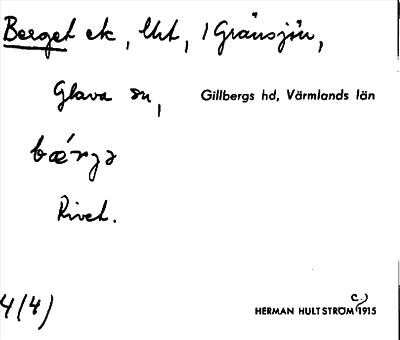 Berget etc, lht, 1 Gränsjön,
Glava sn, Gillbergs hd, Värmlands län
bǽrgə
Rivet.
4(4)
c.)
HERMAN HULTSTRÖM 1915